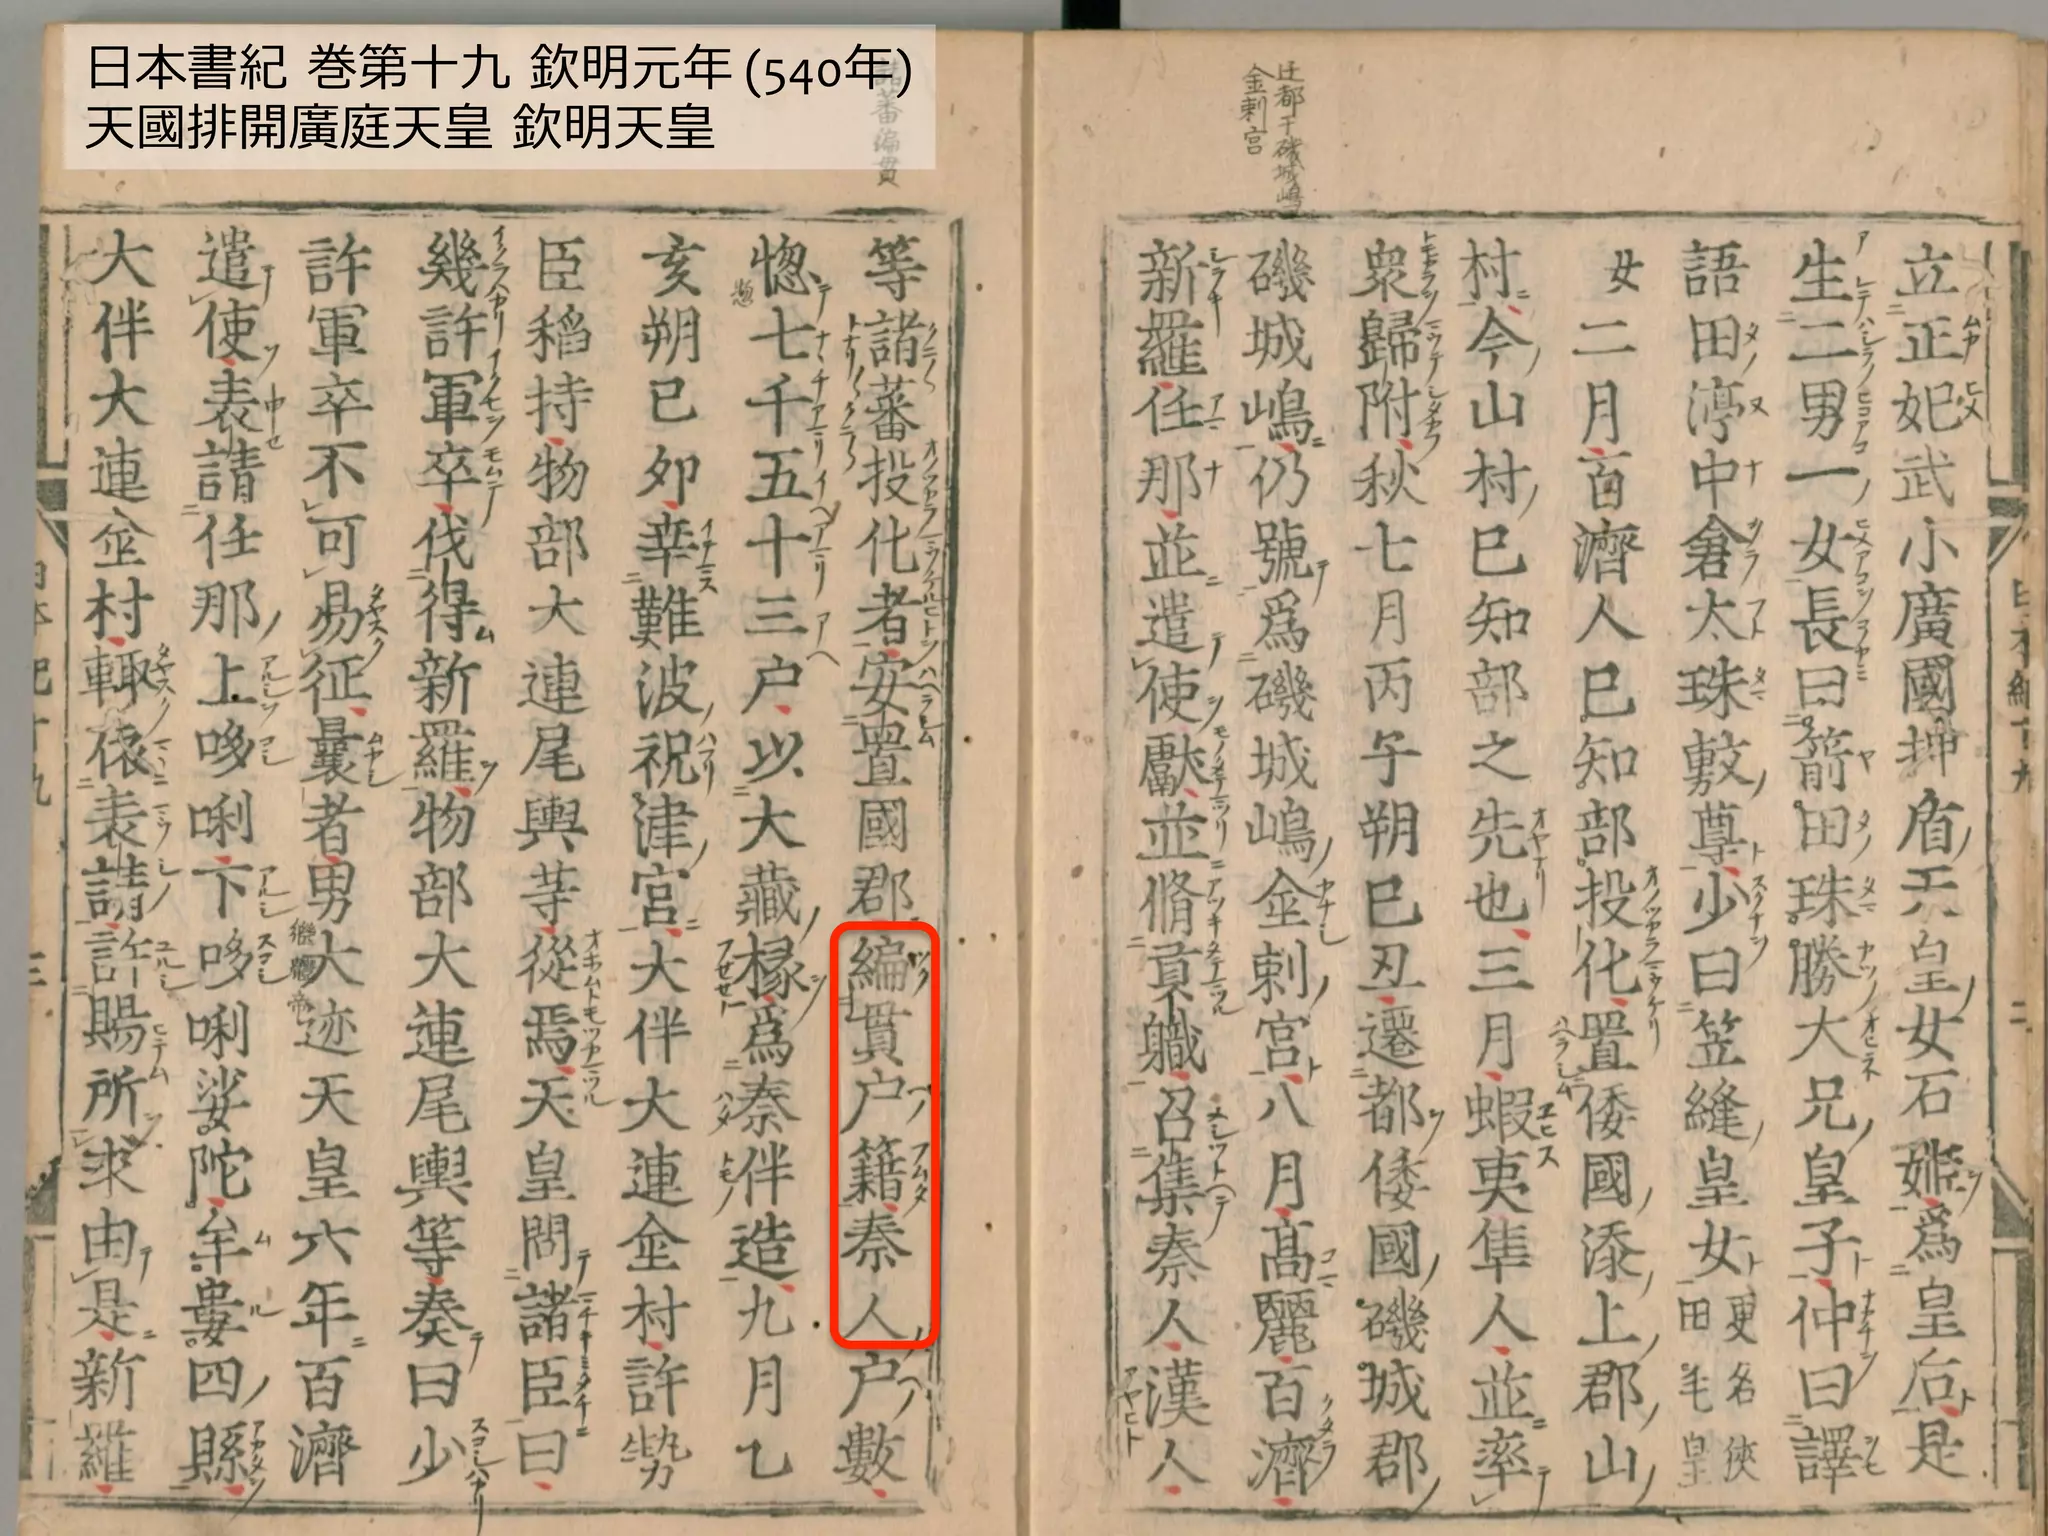 日本書紀 巻第十九 欽明元年 (540年)
天國排開廣庭天皇 欽明天皇
迁都于磯城嶋
金刺宮
立正妃武小廣國押盾天皇女石姬爲皇后是
生二男一女長曰箭田珠勝大兄皇子仲曰譯
語田渟中倉太珠敷尊少曰笠縫皇女
更名狹
田毛皇
女二月百濟人巳知部投化置倭國添上郡山
村今山村巳知部之先也三月蝦夷隼人並率
衆歸附秋七月丙子朔巳丑遷都倭國磯城郡
磯城嶋仍號爲磯城嶋金刺宮八月髙麗百濟
新羅任那並遣使獻並脩貢職召集秦人漢人
諸蕃編貫
等諸蕃投化者安置國郡編貫户籍秦人户數
惣七千五十三户以大藏椽爲秦伴造九月乙
亥朔已夘幸難波祝津宮大伴大連金村許勢
臣稻持物部大連尾輿等從焉天皇問諸臣曰
幾許軍卒伐得新羅物部大連尾輿等奏曰少
許軍卒不可易征曩者男大迹天皇六年百濟
繼體帝
遣使表請任那上哆唎下哆唎娑陀牟婁四縣
大伴大連金村輙依表請許賜所求由是新羅